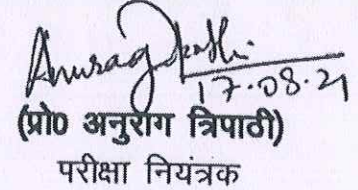 Anurag Tripathi
17.08.21
(प्रो0 अनुराग त्रिपाठी)
परीक्षा नियंत्रक